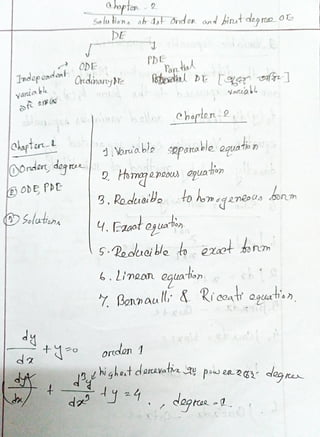 Chapter - 2
Solutions of 1st Order and first degree DE
DE
ODE PDE
Independent Ordinary DE Partial DE
variable variable
Chapter-1
① Order, degree
② ODE, PDE
③ Solutions
Chapter-2
1. Variable separable equation
2. Homogeneous equation
3. Reducible to homogeneous form
4. Exact equation
5. Reducible to exact form
6. Linear equation.
7. Bernoulli & Riccati equation.
dy/dx + y = 0 order 1
highest derevative power degree
+ d³y/dx³ + y = 4 . , degree - 1.